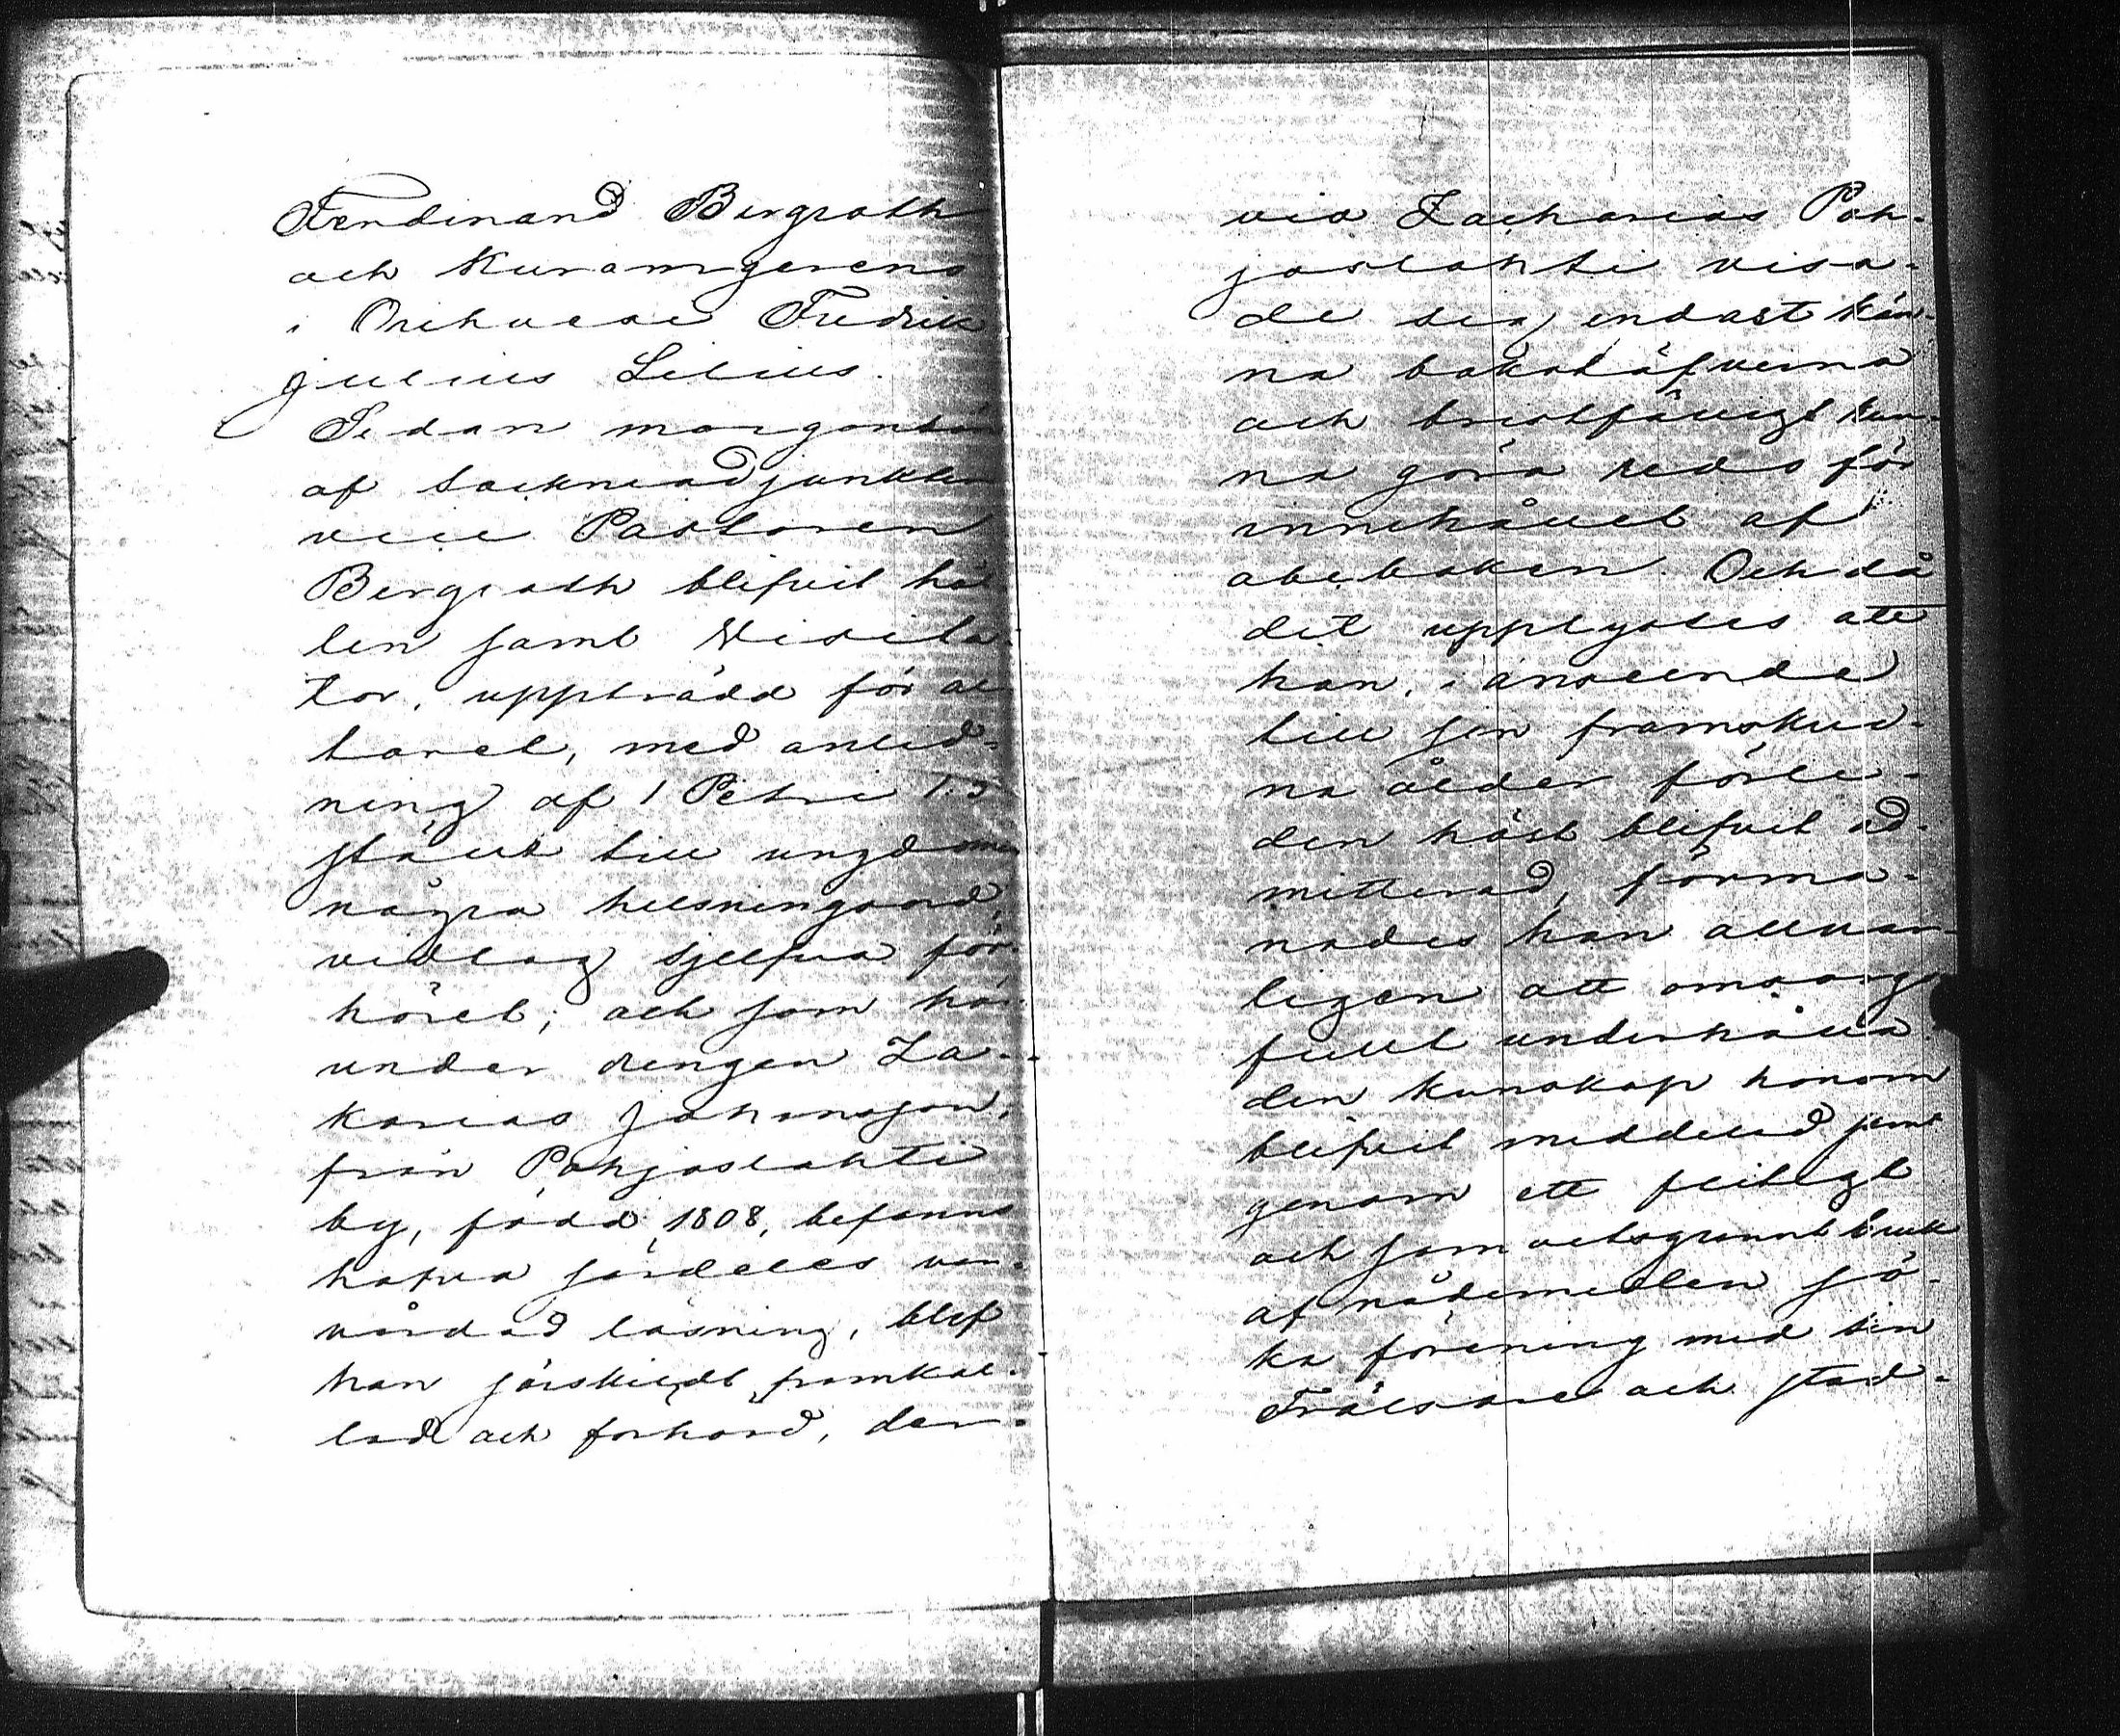 Ferdinand Bergroth
och Kuramgerens
i Orihvesi Fredrik
Julius Lilius.
Sedan morgonbön
af Sockneadjunkten
vice Pastoren
Bergroth blifvit hål
len samt Visita
tor, uppträdd för al
taret, med anled-
ning af 1 Petri 1.3
stält till ungdomen
några helsningsord,
vidtog sjelfva för-
höret; och som här-
under drengen Za-
karias Johansson,
från Pohjaslahti
by, född 1808, befanns
hafva särdeles van-
vårdad läsning, blef
han särskildt framkal-
lad och förhörd, der-
vid Zacharias Poh-
jaslahti visa-
de sig endast kän-
na bokstäfverna
och bristfälligt kun-
na göra reda för
innehållet af
abcboken. Och då
det upplystes att
han, i anseende
till sin framskrid-
na ålder förli-
den höst blifvit ad-
mitterad, förma-
nades han allvar-
ligen att omsorgs
fullt underhålla
den kunskap honom
blifvit meddelad samt
genom ett flitigt
och samvetsgrannt bruk
af nådemedlen sö-
ka förening med sin
Frälsare och stad-